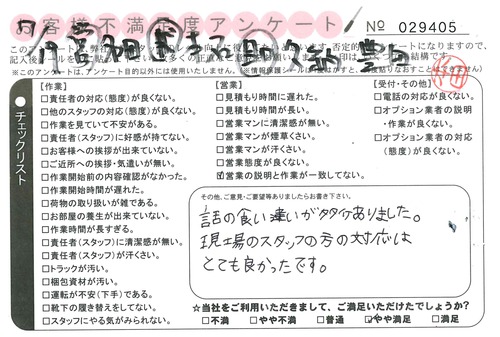 お客様不満足度アンケート
No 029405
チェックリスト
【作業】
□責任者の対応(態度)が良くない。
□他のスタッフの対応(態度)が良くない。
□作業を見ていて不安がある。
□責任者(スタッフ)に好感が持てない。
□お客様への挨拶が出来ていない。
□ご近所への挨拶・気遣いが無い。
□作業開始前の内容確認がなかった。
□作業開始時間が遅れた。
□荷物の取り扱いが雑である。
□お部屋の養生が出来ていない。
□作業時間が長すぎる。
□責任者(スタッフ)に清潔感が無い。
□責任者(スタッフ)が汗くさい。
□トラックが汚い。
□梱包資材が汚い。
□運転が不安(下手)である。
□靴下の履き替えをしてない。
□スタッフにやる気がみられない。
【営業】
□見積もり時間に遅れた。
□見積もり時間が長い。
□営業マンに清潔感が無い。
□営業マンが煙草くさい。
□営業マンが汗くさい。
□営業態度が良くない。
☑営業の説明と作業が一致してない。
【受付・その他】
□電話の対応が良くない。
□オプション業者の説明・作業が良くない。
□オプション業者の対応(態度)が良くない。
その他、ご意見・ご要望等ありましたらお書き下さい。
話の食い違いが多々ありました。
現場のスタッフの方の対応は
とても良かったです。
☆当社をご利用いただきまして、ご満足いただけたでしょうか?
□不満 □やや不満 □普通 ☑やや満足 □満足